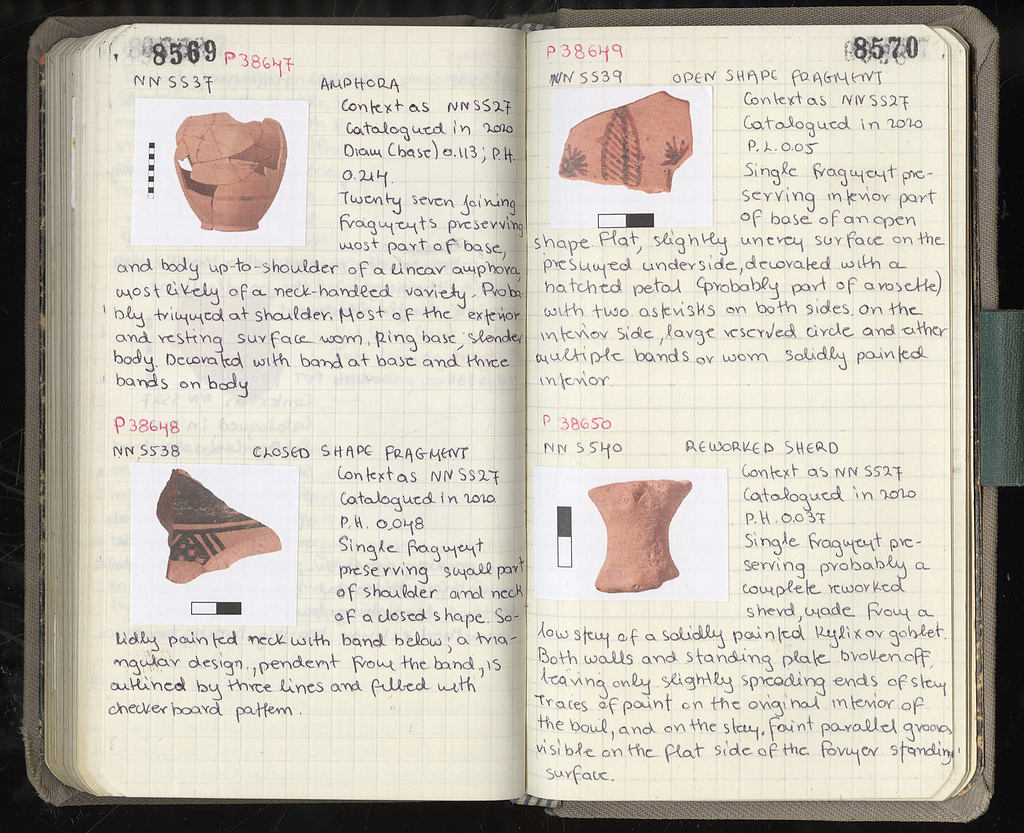 8569 P38647
NN 5537 AMPHORA
Context as NN5527
Catalogued in 2020
Diam (base) 0.113; P.H.
0.214.
Twenty seven joining
fragments preserving
most part of base,
and body up-to-shoulder of a linear amphora,
most likely of a neck-handled variety. Proba-
bly trimmed at shoulder. Most of the exterior
and resting surface worn. Ring base; slender
body. Decorated with band at base and three
bands on body
P38648
NN 5538 CLOSED SHAPE FRAGMENT
Context as NN5527
Catalogued in 2020
P.H. 0.048
Single fragment
preserving small part
of shoulder and neck
of a closed shape. So-
lidly painted neck with band below; a tria-
ngular design, pendent from the band, is
outlined by three lines and filled with
checkerboard pattern.
P38649 8570
NN 5539 OPEN SHAPE FRAGMENT
Context as NN5527
Catalogued in 2020
P.L. 0.05
Single fragment pre-
serving interior part
of base of an open
shape. Flat, slightly unevey surface on the
presumed underside, decorated with a
hatched petal (probably part of a rosette)
with two asterisks on both sides. on the
interior side, large reserved circle and either
multiple bands or worn solidly painted
interior.
P 38650
NN 5540 REWORKED SHERD
Context as NN5527
Catalogued in 2020
P.H. 0.037
Single fragment pre-
serving probably a
complete reworked
sherd, made from a
low stem of a solidly painted kylix or goblet.
Both walls and standing plate broken off,
leaving only slightly spreading ends of stem
Traces of paint on the original interior of
the bowl, and on the stem. Faint parallel grooves
visible on the flat side of the former standing
surface.